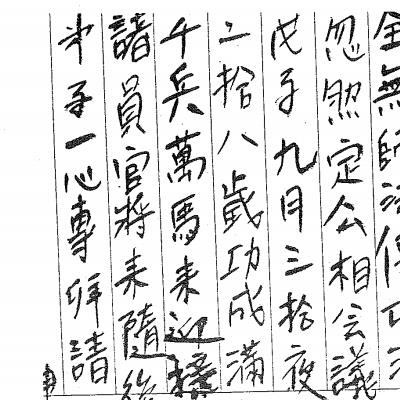 金無師法
忽然定公相会議
戊子九月三拾夜
二拾八歲功成滿
千兵萬馬来迎接
諸員官将来隨後
弟子一心專拜請